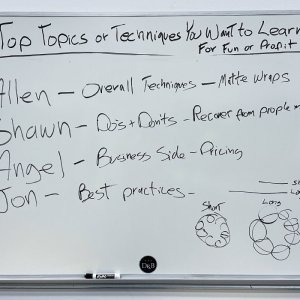 Top Topics or Techniques You Want to Learn
For Fun or Profit
Allen - Overall Techniques - Matte Wraps
Shawn - Do's + Dont's - Recover from people
Angel - Business Side - Pricing
Jon - Best practices -
Short
Long
DRB
EXPO